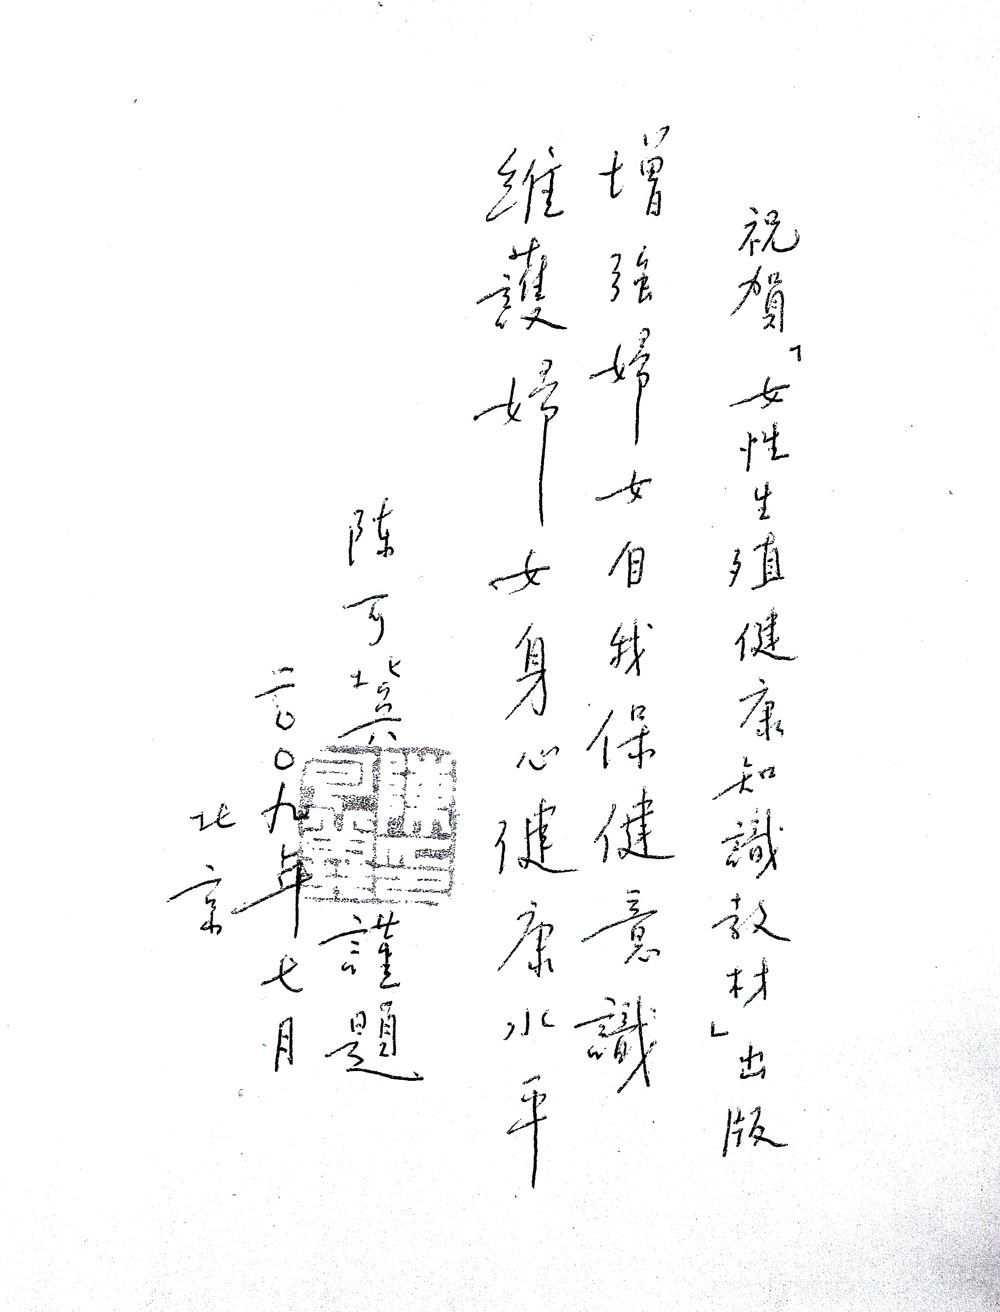 祝賀「女性生殖健康知識教材」出版
增強婦女自我保健意識
維護婦女身心健康水平
陈可冀
謹題
二〇〇九年七月
北京